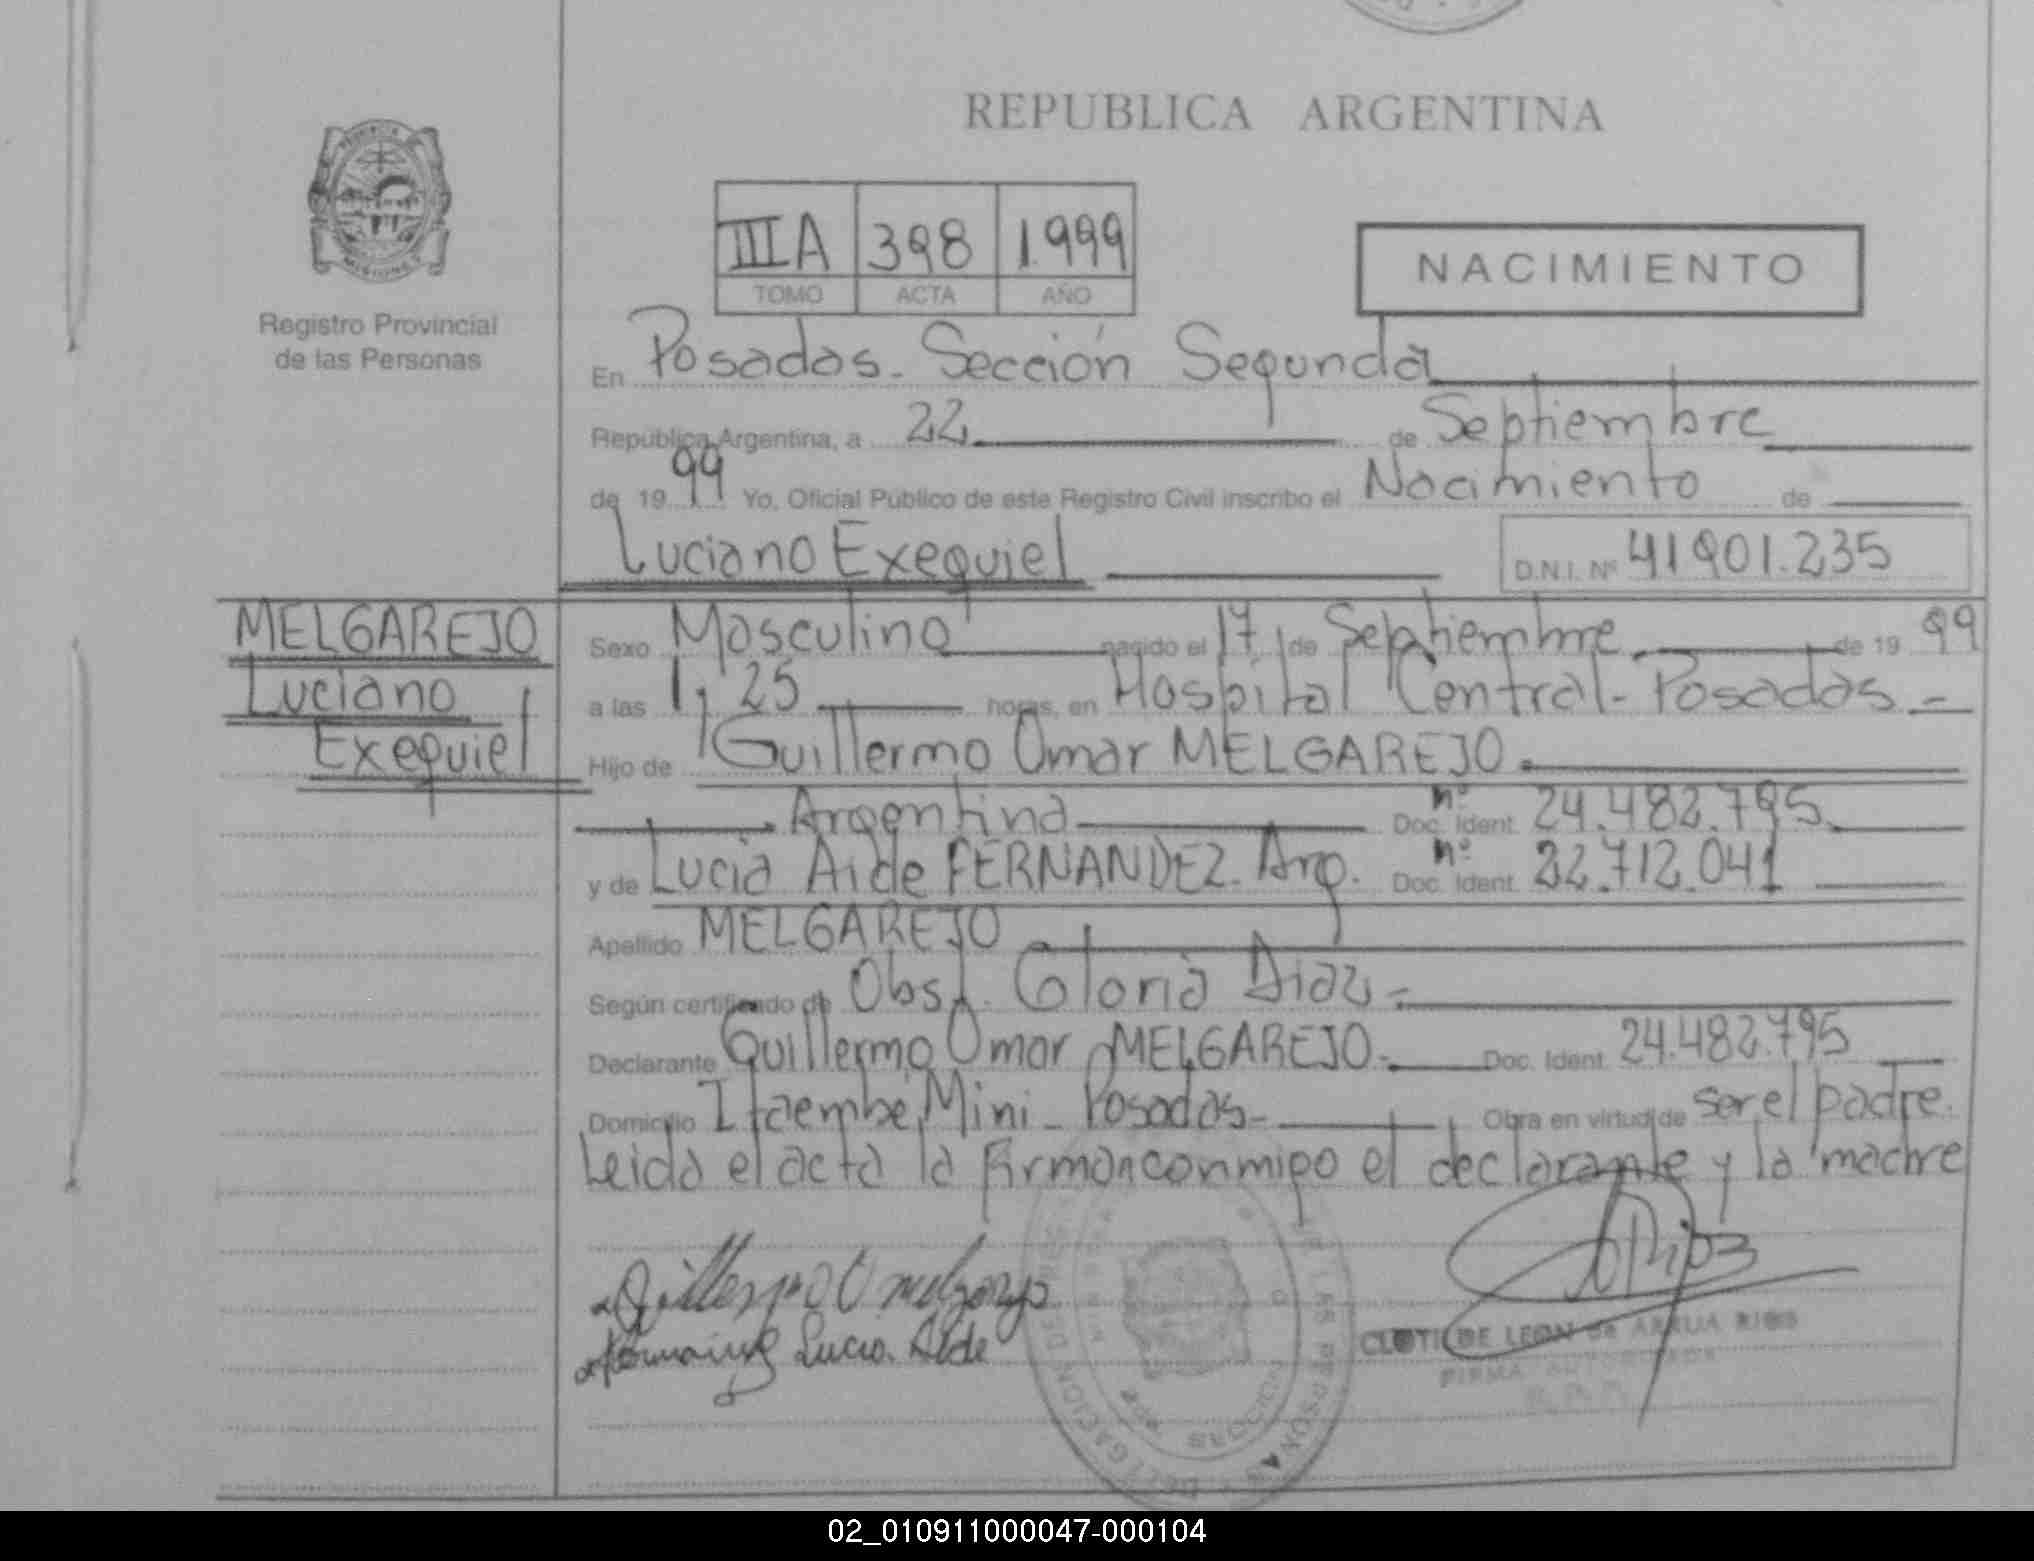 REPUBLICA ARGENTINA
PROVINCIA DE MISIONES
Registro Provincial
de las Personas
IIIA 398 1.999
TOMO ACTA AÑO
NACIMIENTO
En Posadas - Sección Segunda
República Argentina, a 22 de Septiembre
de 1999 Yo, Oficial Público de este Registro Civil inscribo el Nacimiento de
Luciano Exequiel D.N.I. Nº 41901.235
MELGAREJO
Luciano
Exequiel
Sexo Masculino nacido el 17 de Septiembre de 1999
a las 1,25 horas, en Hospital Central - Posadas -
Hijo de Guillermo Omar MELGAREJO.
Argentina Doc. Ident. nº 24.482.795
y de Lucia Aide FERNANDEZ - Arg. Doc. Ident. nº 22.712.041
Apellido MELGAREJO
Según certificado de Obst. Gloria Diaz -
Declarante Guillermo Omar MELGAREJO - Doc. Ident. 24.482.795
Domicilio Itaembe Mini - Posadas - Obra en virtud de ser el padre.
Leida el acta la firman conmigo el declarante y la madre
Lucia Aide
CLOTILDE LEON de ARRUA RIOS
FIRMA AUTORIZADA
02_010911000047-000104